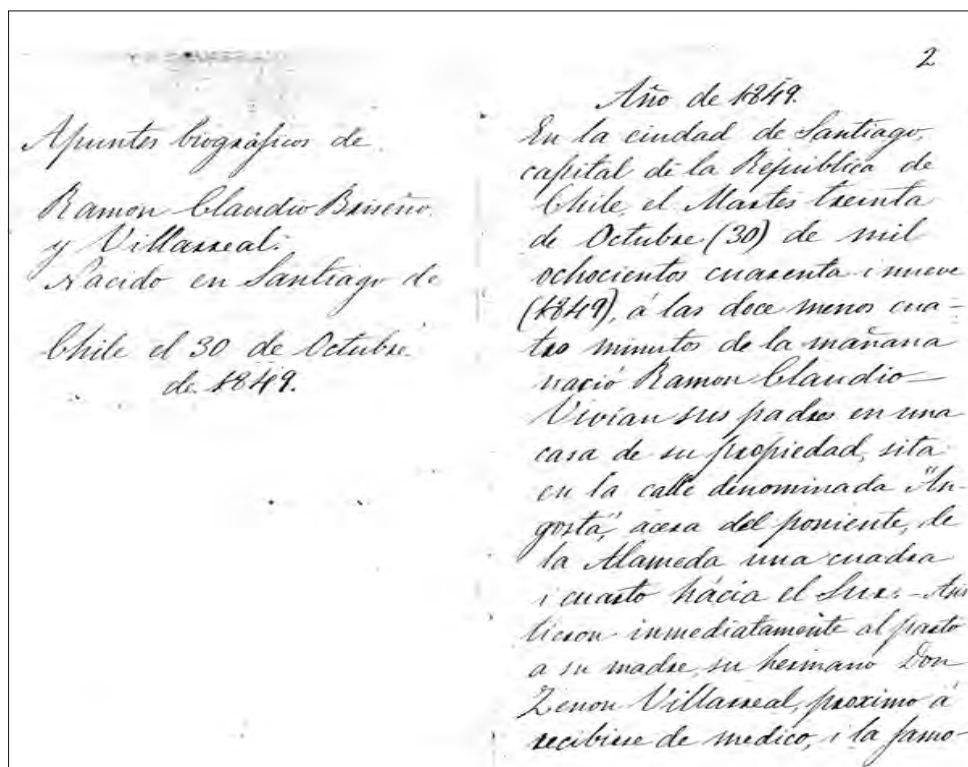 Apuntes biográficos de
Ramon Claudio Briseño
y Villarreal.
Nacido en Santiago de
Chile el 30 de Octubre
de 1849.
2
Año de 1849.
En la ciudad de Santiago,
capital de la República de
Chile, el Martes treinta
de Octubre (30) de mil
ochocientos cuarenta i nueve
(1849), á las doce menos cua-
tro minutos de la mañana
nació Ramon Claudio—
Vivian sus padres en una
casa de su propiedad, sita
en la calle denominada "An-
gosta," acera del poniente, de
la Alameda una cuadra
i cuarto hácia el Sur.- Asis
tieron inmediatamente al parto
a su madre, su hermano Don
Zenon Villarreal, proximo á
recibirse de medico, i la famo-